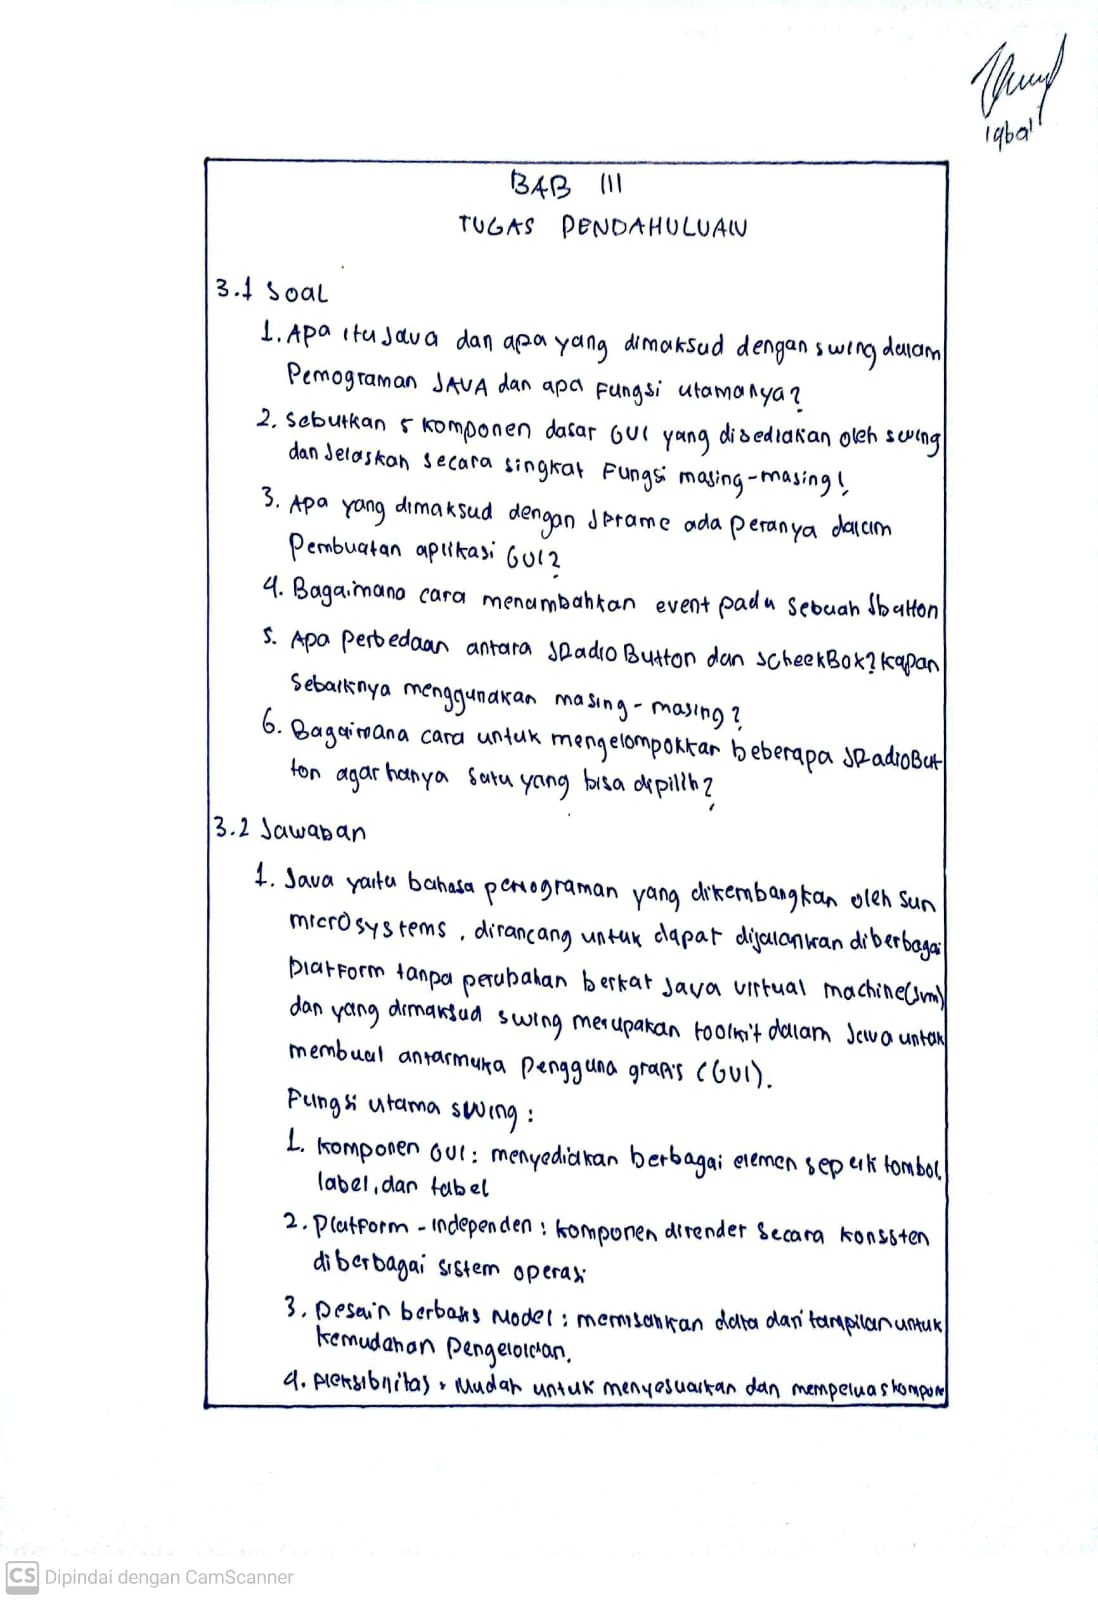 Iqbal
BAB III
TUGAS PENDAHULUAN
3.1 Soal
1. Apa itu Java dan apa yang dimaksud dengan swing dalam
Pemograman JAVA dan apa Fungsi utamanya?
2. Sebutkan 5 komponen dasar GUI yang disediakan oleh swing
dan Jelaskan secara singkat Fungsi masing-masing!
3. Apa yang dimaksud dengan JFrame ada Peranya dalam
Pembuatan aplikasi GUI?
4. Bagaimana cara menambahkan event pada sebuah Jbutton
5. Apa Perbedaan antara JRadio Button dan JCheekBox? Kapan
Sebaiknya menggunakan masing-masing?
6. Bagaimana cara untuk mengelompokkan beberapa JRadioBut
ton agar hanya satu yang bisa dipilih?
3.2 Jawaban
1. Java yaitu bahasa pemograman yang dikembangkan oleh Sun
microsystems, dirancang untuk dapat dijalankan diberbagai
platform tanpa perubahan berkat Java virtual machine(Jvm)
dan yang dimaksud swing merupakan toolkit dalam Java untuk
membuat antarmuka Pengguna grafis (GUI).
Fungsi utama swing:
1. komponen GUI: menyediakan berbagai elemen seperti tombol,
label, dan tabel
2. Platform - independen: komponen dirender secara konssten
diberbagai sistem operasi
3. Desain berbasis Model: memisahkan data dari tampilan untuk
kemudahan Pengelolaan.
4. Fleksibilitas: Mudah untuk menyesuaikan dan memperluas kompone
CS Dipindai dengan CamScanner